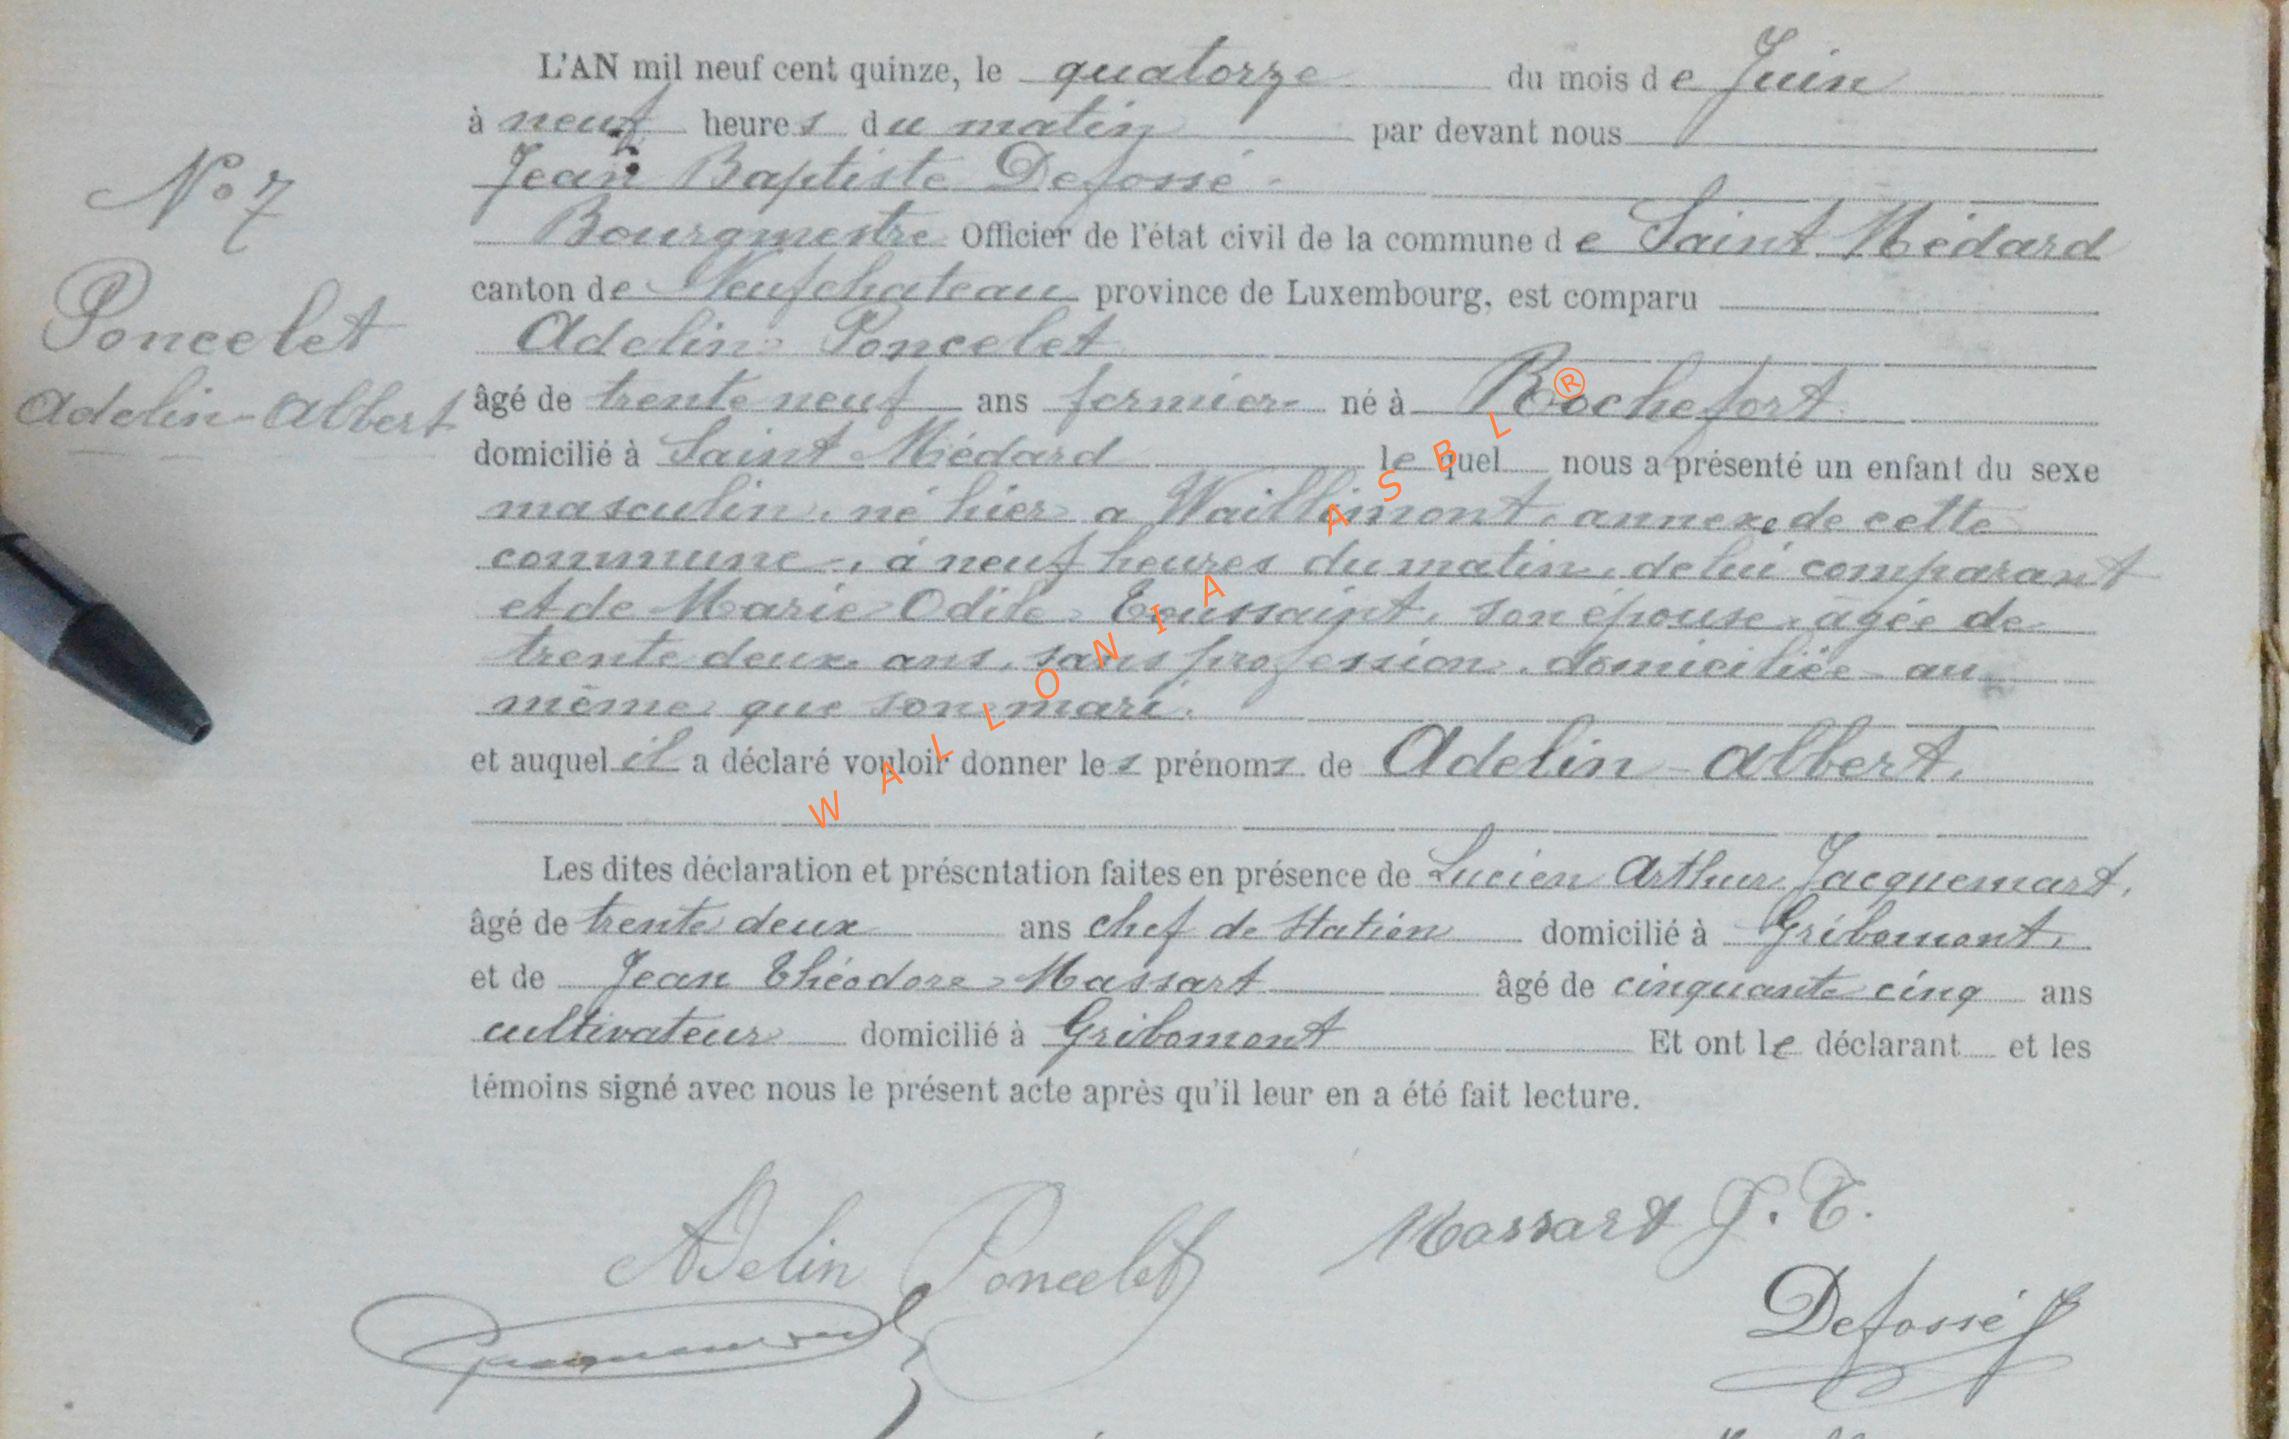 N° 7
Poncelet
Adelin-Albert
L'AN mil neuf cent quinze, le quatorze du mois de Juin
à neuf heures du matin par devant nous
Jean Baptiste Defossé
Bourgmestre Officier de l'état civil de la commune de Saint Médard
canton de Neufchateau province de Luxembourg, est comparu
Adelin Poncelet
âgé de trente neuf ans fermier né à Rochefort
domicilié à Saint Médard lequel nous a présenté un enfant du sexe
masculin, né hier a Waillimont, annexe de cette
commune, à neuf heures du matin, de lui comparant
et de Marie Odile Toussaint, son épouse, agée de
trente deux ans, sans profession, domiciliée au
même que son mari.
et auquel il a déclaré vouloir donner les prénoms de Adelin-Albert.
Les dites déclaration et présentation faites en présence de Lucien Arthur Jacquemart,
âgé de trente deux ans chef de station domicilié à Gribomont,
et de Jean Théodore Massart âgé de cinquante cinq ans
cultivateur domicilié à Gribomont Et ont le déclarant et les
témoins signé avec nous le présent acte après qu'il leur en a été fait lecture.
Adelin Poncelet
Massart J. T.
Defossé J
WALLONIA ASBL®